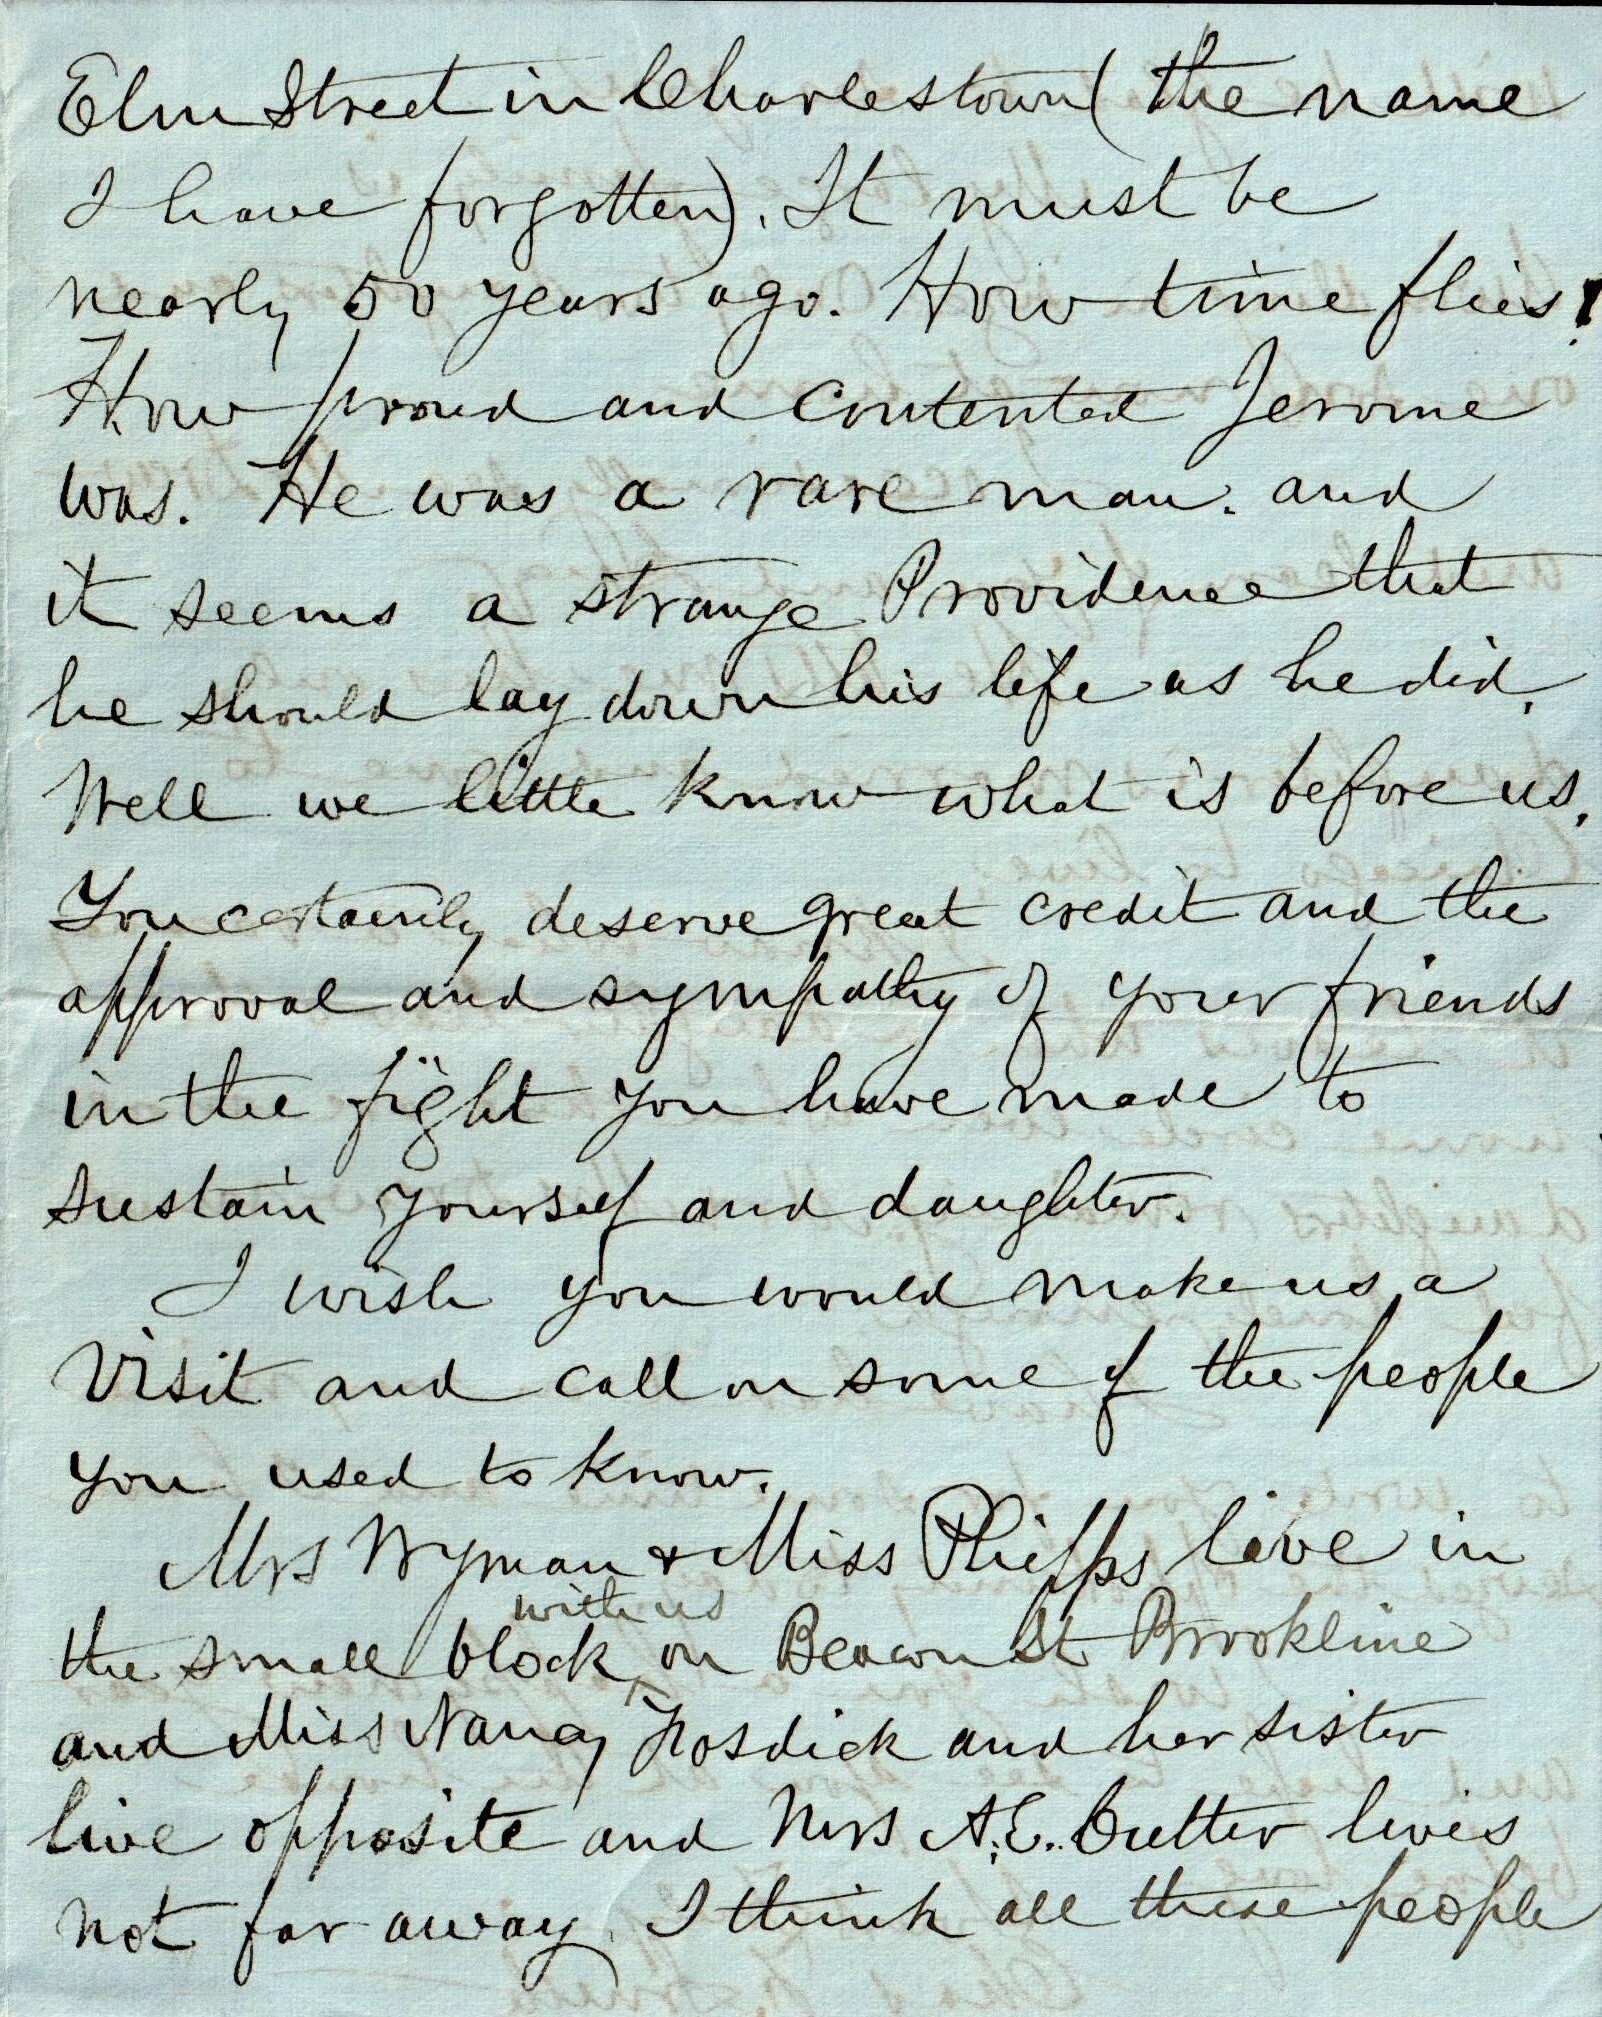 Elm Street in Charlestown (the name
I have forgotten). It must be
nearly 50 years ago. How time flies!
How proud and contented Jerome
was. He was a rare man. and
it seems a strange Providence that
he should lay down his life as he did.
Well we little know what is before us.
You certainly deserve great credit and the
approval and sympathy of your friends
in the fight you have made to
sustain yourself and daughter.
I wish you would make us a
visit and call on some of the people
you used to know.
Mrs Wyman & Miss Phipps live in
with us
the small block ^ on Beacon St Brookline
and Miss Nancy Fosdick and her sister
live opposite and Mrs A. E. Cutter lives
not far away. I think all these people